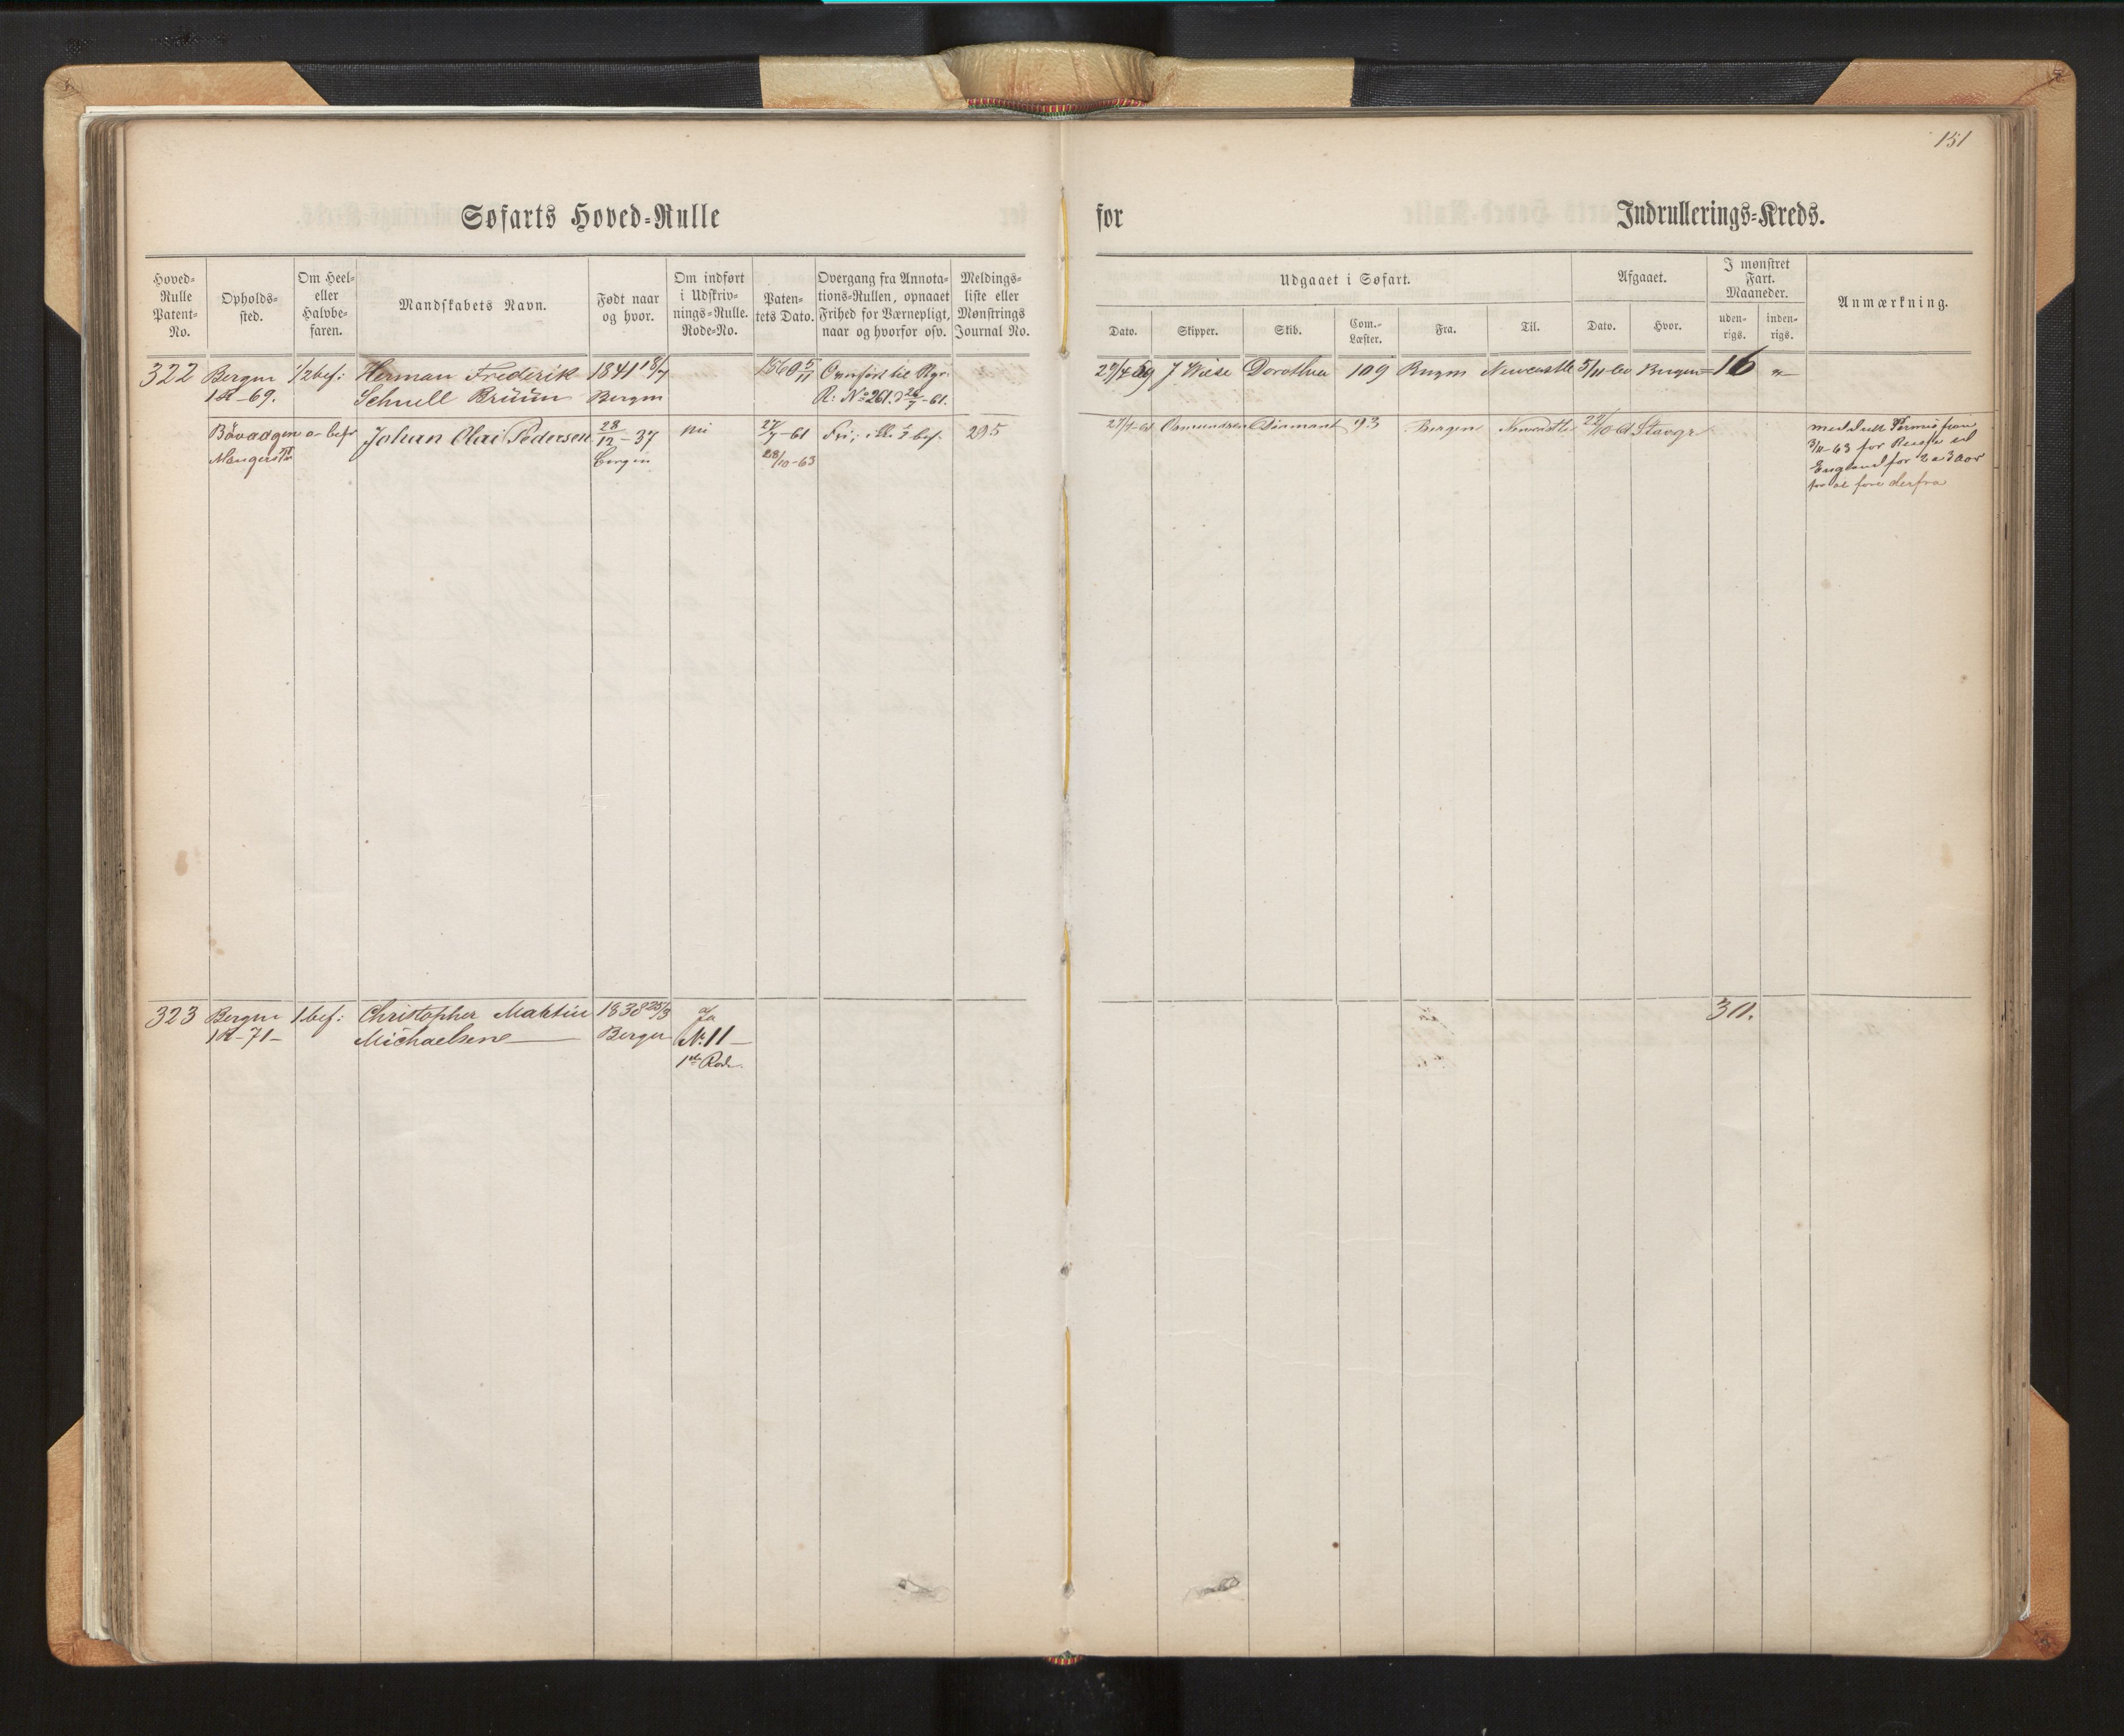 151
Søfarts Hoved-Rulle
for
Indrullerings-Kreds.
Hoved-
Rulle
Patent-
No.
Opholds-
sted.
Om Heel-
eller
Halvbe-
faren.
Mandskabets Navn.
Født naar
og hvor.
Om indført
i Udskriv-
nings-Rulle.
Rode-No.
Paten-
tets Dato.
Overgang fra Annota-
tions-Rullen, opnaaet
Frihed for Værnepligt,
naar og hvorfor osv.
Meldings-
liste eller
Mønstrings
Journal No.
Udgaaet i Søfart.
Dato.
Skipper.
Skib.
Com.-
Læster.
Fra.
Til.
Afgaaet.
Dato.
Hvor.
I mønstret
Fart.
Maaneder.
uden-
rigs.
inden-
rigs.
Anmærkning.
322 Bergen 1/2 bef: Herman Frederik 1841 18/7 1860 5/11 Overført til Rgr:
1R-69. Schnell Brüün Bergen R: No 261. d 26/7-61.
J Wiese Dorothea 109 Bergen Newcastle 5/11 60 Bergen 16 "
a-bef. Johan Olai Pedersen 28/12-37 nei 27/7-61 Fri, 295
Bergen
28/10-63
Osmundsen Diamant 93 Bergen Newcastle 22/10-61 Stavgr
meddelt Permis fra
3/11-63 for Reise til
England for 2 a 3 Aar
for at fare derfra
323 Bergen 1 bef: Christopher Martin 1838 25/3 Ja 30.
1R-71- Michaelsen Bergen No 11
1ste Rode.